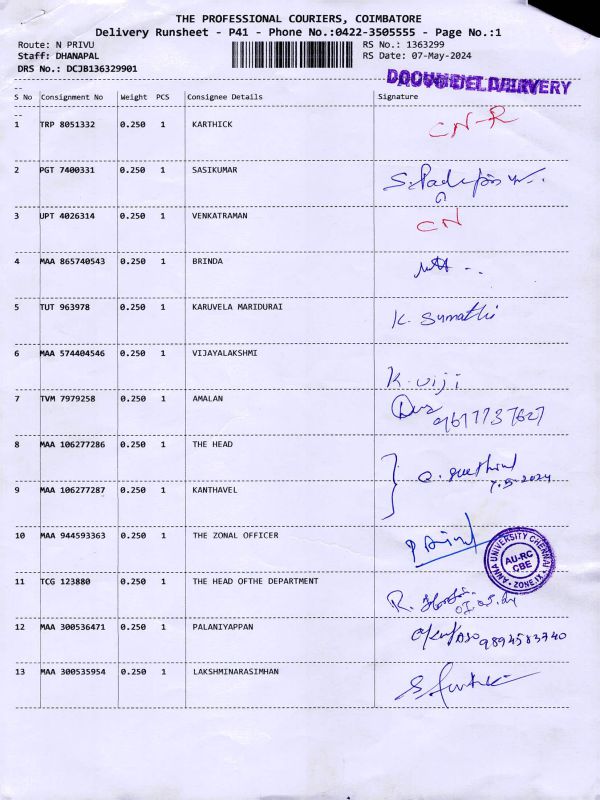 THE PROFESSIONAL COURIERS, COIMBATORE
Delivery Runsheet - P41 - Phone No.:0422-3505555 - Page No.:1
Route: N PRIVU RS No.: 1363299
Staff: DHANAPAL RS Date: 07-May-2024
DRS No.: DCJB136329901
--
S No Consignment No Weight PCS Consignee Details Signature
--
1 TRP 8051332 0.250 1 KARTHICK CN-R
2 PGT 7400331 0.250 1 SASIKUMAR
3 UPT 4026314 0.250 1 VENKATRAMAN CN
4 MAA 865740543 0.250 1 BRINDA
5 TUT 963978 0.250 1 KARUVELA MARIDURAI K. Sumathi
6 MAA 574404546 0.250 1 VIJAYALAKSHMI K. viji
7 TVM 7979258 0.250 1 AMALAN
8 MAA 106277286 0.250 1 THE HEAD
7.5.2024
9 MAA 106277287 0.250 1 KANTHAVEL
10 MAA 944593363 0.250 1 THE ZONAL OFFICER
ANNA UNIVERSITY CHENNAI
AU-RC
CBE
ZONE IX
11 TCG 123880 0.250 1 THE HEAD OFTHE DEPARTMENT
12 MAA 300536471 0.250 1 PALANIYAPPAN 9894583740
13 MAA 300535954 0.250 1 LAKSHMINARASIMHAN